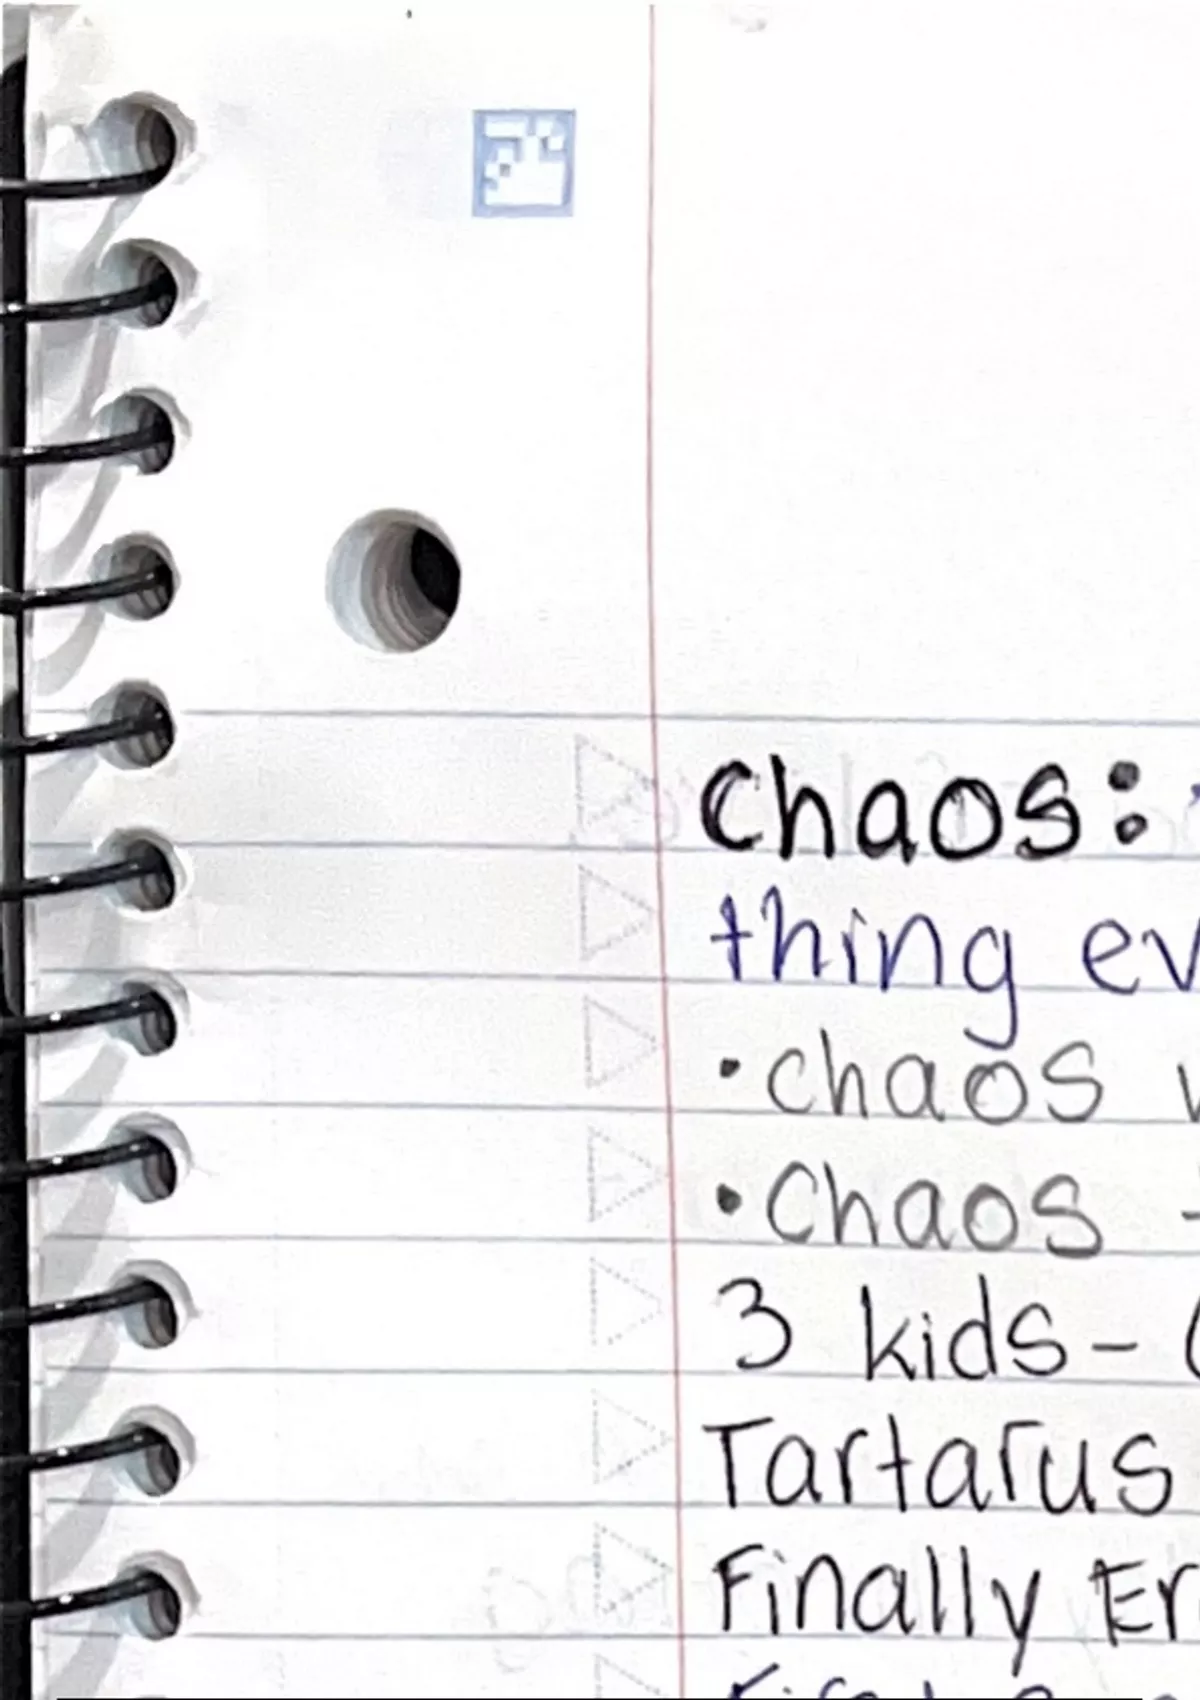 Chaos:
thing ev
•chaos
•Chaos -
3 kids- (
Tartarus
Finally Er